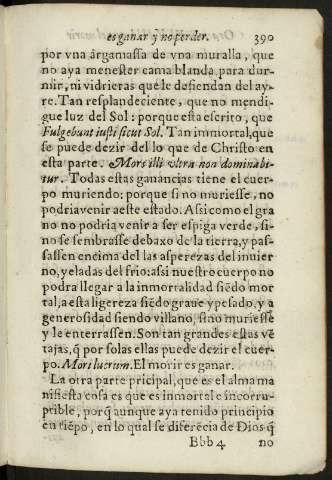 es ganar y no perder. 390
por vna árgamassa de vna muralla, que
no aya menester cama blanda para dur-
mir, ni vidrieras que le defiendan del ay-
re. Tan resplandeciente, que no mendi-
gue luz del Sol: porque esta escrito, que
Fulgebunt iusti sicut Sol. Tan immortal, que
se puede dezir del lo que de Christo en
esta parte. Mors illi vltra non dominabi
tur. Todas estas ganancias tiene el cuer-
po muriendo: porque si no muriesse, no
podria venir a este estado. Assi como el gra
no no podria venir a ser espiga verde, si-
no se sembrasse debaxo de la tierra, y pas-
sassen encima del las asperezas del inuier
no, y eladas del frio: assi nuestro cuerpo no
podra llegar a la inmortalidad siẽdo mor
tal, a esta ligereza siẽdo graue y pesado, y a
generosidad siendo villano, sino muriesse
y le enterrassen. Son tan grandes estas vẽ
tajas, q̃ por solas ellas puede dezir el cuer-
po. Mori lucrum. El morir es ganar.
La otra parte pricipal, que es el alma ma
nifiesta cosa es que es inmortal e incorru-
ptible, porq̃ aunque aya tenido principio
en tiẽpo, en lo qual se diferẽcia de Dios q̃
Bbb 4 no